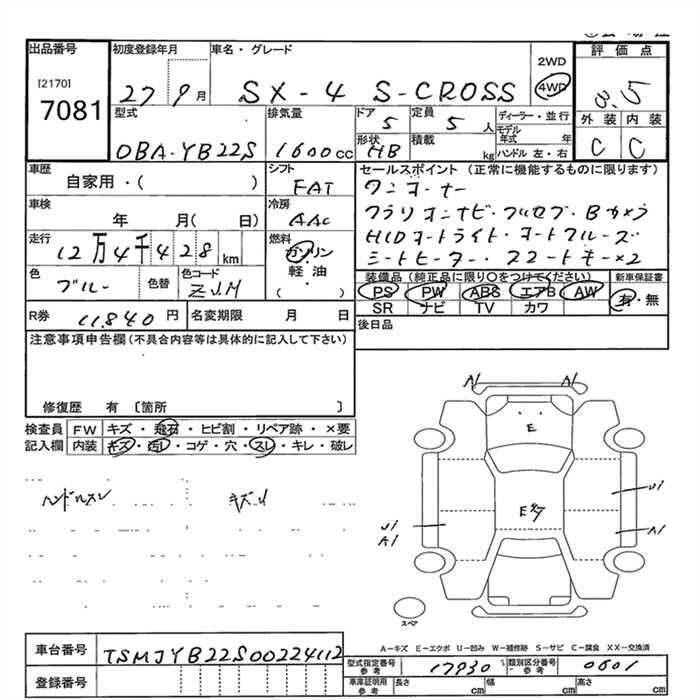 出品番号 初度登録年月 車名・グレード 2WD 評価点
[2170] 4WD
7081 27 9月 SX-4 S-CROSS 3.5
型式 排気量 ドア 定員 ディーラー・並行 外装 内装
DBA-YB22S 1600cc 5 5人 モデル年式 年 C C
形状 積載 ハンドル 左・右
HB kg
車歴 シフト セールスポイント (正常に機能するものに限ります)
自家用・( ) FAT ワンオーナー
車検 冷房 クラリオンナビ・フルセグ・Bカメラ
年 月( 日) AAC HIDオートライト・オートクルーズ
走行 燃料 シートヒーター・スマートキー×2
12万4千428km ガソリン・軽油・( )
色 色替 色コード 装備品 (純正品に限り〇をつけてください) 新車保証書
ブルー ZJM PS PW ABS エアB AW 有・無
SR ナビ TV カワ
R券 11,840円 名変期限 月 日 後日品
注意事項申告欄(不具合内容等は具体的に記入して下さい)
修復歴 有 〔箇所 〕
検査員 FW キズ・飛石・ヒビ割・リペア跡・×要
記入欄 内装 キズ・汚レ・コゲ・穴・スレ・キレ・破レ
A1 A1
E
ハンドルスレ キズU
U1
Eタク
U1
A1 A1
スペア
A-キズ E-エクボ U-凹み W-補修跡 S-サビ C-腐食 XX-交換済
車台番号 TSMJYB22S00224112
型式指定番号 参考 17930 類別区分番号 参考 0601
登録番号 車庫証明用 参考 長さ cm 幅 cm 高さ cm